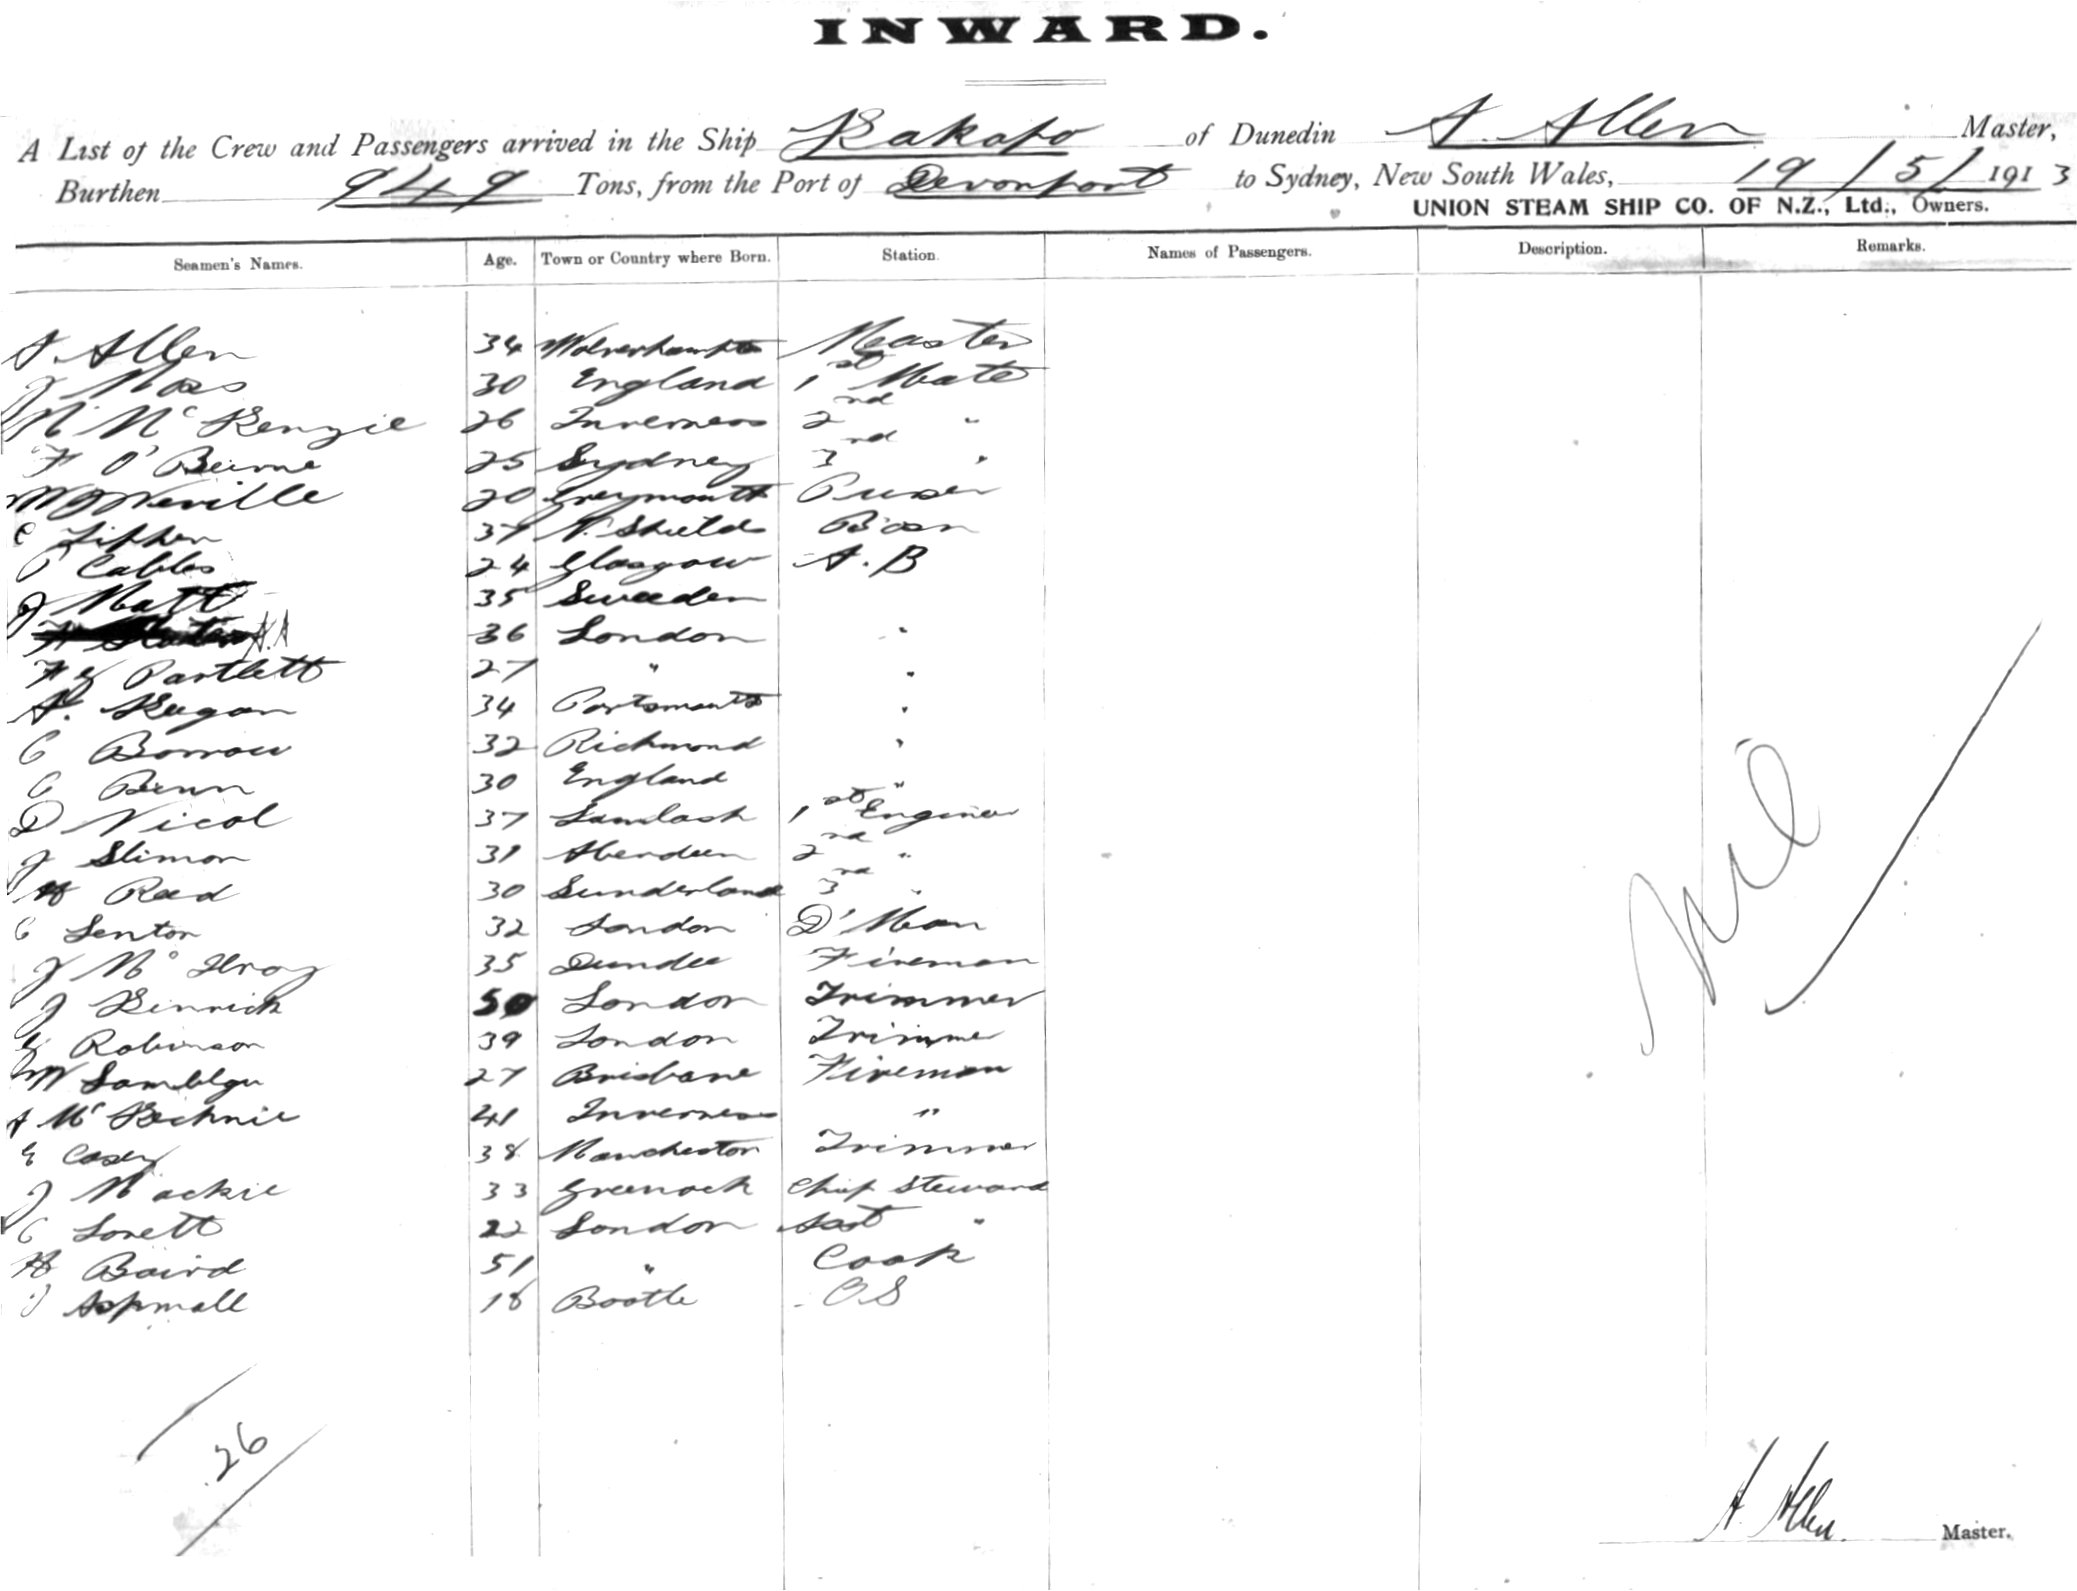 INWARD.
A List of the Crew and Passengers arrived in the Ship Kakapo of Dunedin A. Allen Master,
Burthen 949 Tons, from the Port of Devonport to Sydney, New South Wales, 19/5/1913
UNION STEAM SHIP CO. OF N.Z., Ltd., Owners.
Seamen's Names. Age. Town or Country where Born. Station. Names of Passengers. Description. Remarks.
A. Allen 34 Master
J Moss 30 England 1st Mate
McKenzie 26 Inverness 2nd "
F O'Beirne 25 Sydney 3rd "
Neville 20 Greymouth Purser
C 37 N. Shields Bosn
P Cables 24 Glasgow A.B
J Matt 35 Sweeden
36 London "
Partlett 27 " "
A. Keegan 34 Portsmouth "
C Borrow 32 Richmond "
C Binn 30 England "
D Nicol 37 Lamlash 1st Engineer
J Slimon 31 Aberdeen 2nd "
H Reed 30 Sunderland 3rd "
C Lenton 32 London D'Man
J McIlroy 35 Dundee Fireman
J Kenrick 50 London Trimmer
G Robinson 39 London Trimmer
W 27 Brisbane Fireman
A McKechnie 41 Inverness "
E Casey 38 Manchester Trimmer
J Mackie 33 Greenock Chief Steward
C Lovett 22 London Asst "
H Baird 51 " Cook
J Aspmall 18 Bootle OS
Nil
26
A. Allen. Master.